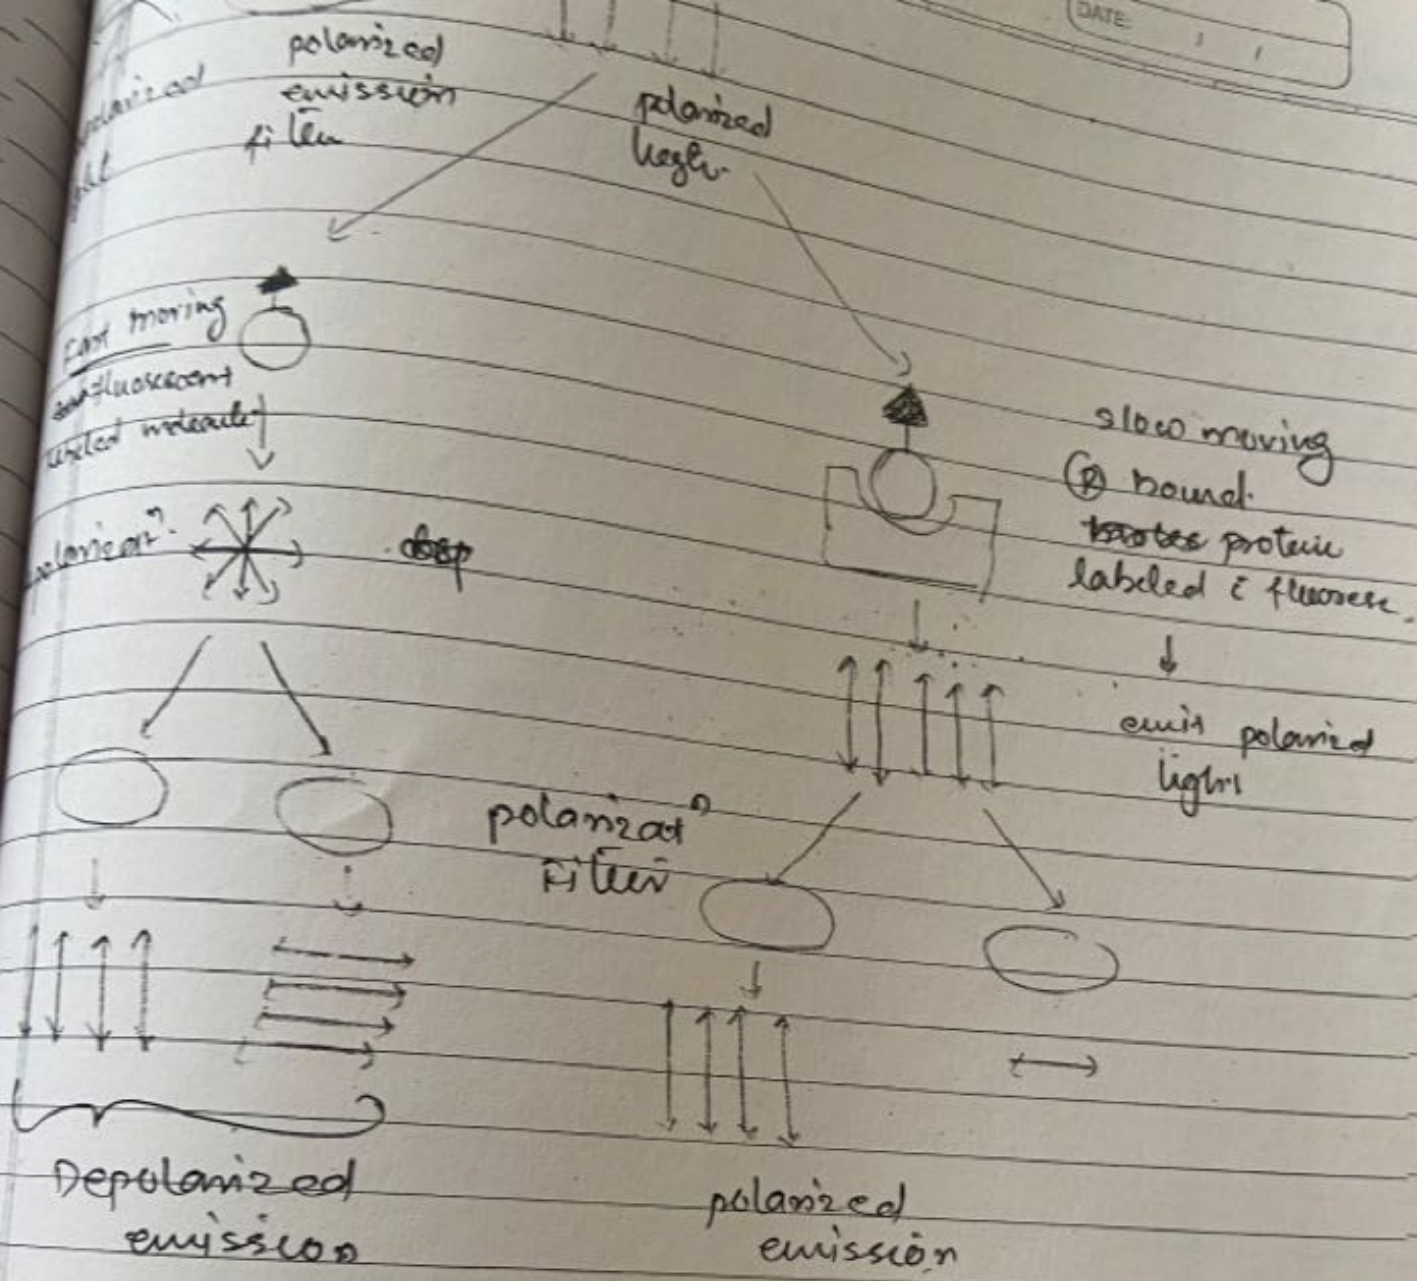 DATE:
polarized
emission
filter
polarized
light
polarized
light
Fast moving
fluorescent
labeled molecule
slow moving
(R) bound
protein
labeled c̄ fluoresce
↓
emit polarized
light
polarizatⁿ
Filter
Depolarized
emission
polarized
emission